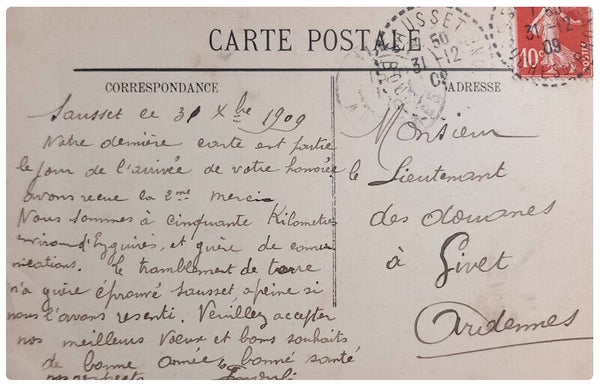 CARTE POSTALE
CORRESPONDANCE
ADRESSE
Sausset le 31 Xbre 1909
Notre dernière carte est partie
le jour de l'arrivée de votre honorée
avons reçue la 2me merci
Nous sommes à cinquante Kilometres
environ d'Eyguires, et guère de commu
nications. le tramblement de terre
n'a guère éprouvé Sausset apeine si
nous l'avons resenti. Veuillez accepter
nos meilleurs Vœux et bons souhaits
de bonne année, bonne santé
nos respects
Monsieur
le Lieutenant
des douanes
à Givet
Ardennes
SAUSSET
50
31-12
09
50
31-12
09
10c